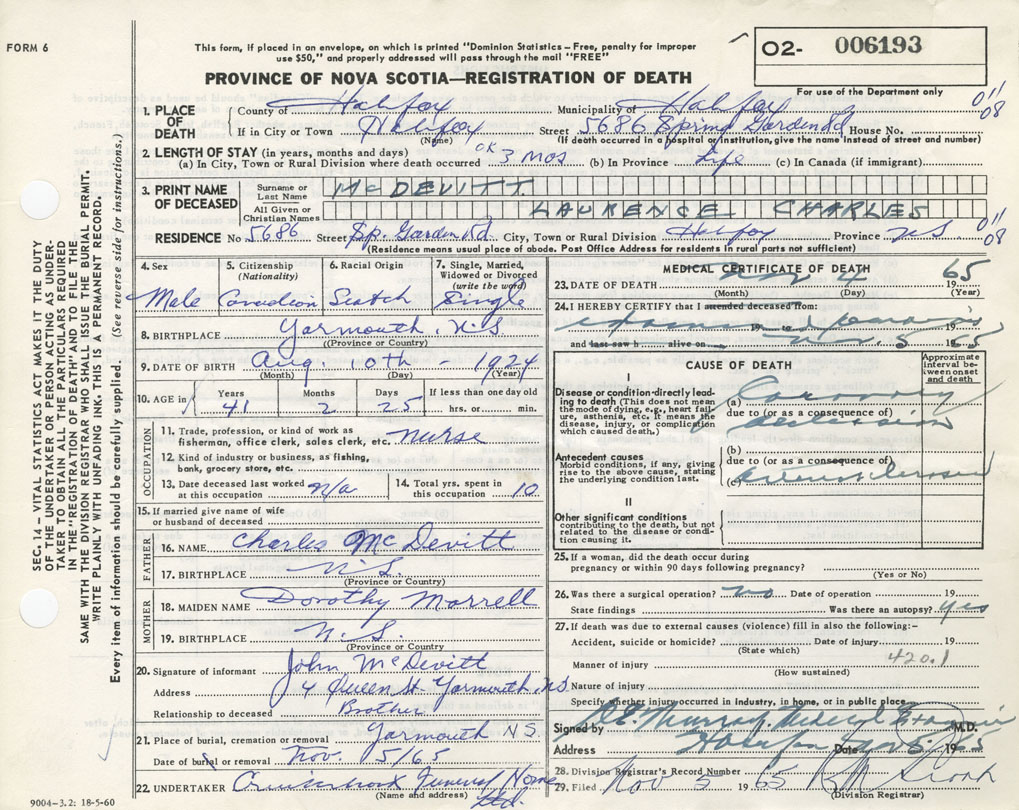 FORM 6
This form, if placed in an envelope, on which is printed "Dominion Statistics – Free, penalty for improper
use $50," and properly addressed will pass through the mail "FREE"
PROVINCE OF NOVA SCOTIA—REGISTRATION OF DEATH
O2- 006193
For use of the Department only
1. PLACE OF DEATH { County of Halifax Municipality of Halifax 011 08
If in City or Town Halifax Street 5686 Spring Garden Rd House No.
(Name) (If death occurred in a hospital or institution, give the name instead of street and number)
2. LENGTH OF STAY (in years, months and days)
(a) In City, Town or Rural Division where death occurred OK 3 mos (b) In Province Life (c) In Canada (if immigrant)
3. PRINT NAME OF DECEASED
Surname or Last Name McDEVITT
All Given or Christian Names LAURENCE CHARLES
RESIDENCE No. 5686 Street Sp. Garden Rd. City, Town or Rural Division Halifax Province NS 011 08
(Residence means usual place of abode. Post Office Address for residents in rural parts not sufficient)
4. Sex Male
5. Citizenship (Nationality) Canadian
6. Racial Origin Scotch
7. Single, Married, Widowed or Divorced (write the word) Single
8. BIRTHPLACE Yarmouth, N.S
(Province or Country)
9. DATE OF BIRTH Aug. 10th - 1924
(Month) (Day) (Year)
10. AGE in Years 41 Months 2 Days 25 If less than one day old hrs. or min.
OCCUPATION
11. Trade, profession, or kind of work as fisherman, office clerk, sales clerk, etc. nurse
12. Kind of industry or business, as fishing, bank, grocery store, etc.
13. Date deceased last worked at this occupation N/a
14. Total yrs. spent in this occupation 10
15. If married give name of wife or husband of deceased
FATHER
16. NAME Charles McDevitt
17. BIRTHPLACE N.S.
(Province or Country)
MOTHER
18. MAIDEN NAME Dorothy Morrell
19. BIRTHPLACE N.S.
(Province or Country)
20. Signature of informant John McDevitt
Address 4 Queen St. Yarmouth, NS
Relationship to deceased Brother
21. Place of burial, cremation or removal Yarmouth N.S.
Date of burial or removal Nov. 5/65
22. UNDERTAKER Cruikshank Funeral Home Ltd.
(Name and address)
MEDICAL CERTIFICATE OF DEATH
23. DATE OF DEATH Nov 4 1965
(Month) (Day) (Year)
24. I HEREBY CERTIFY that I attended deceased from:
examined remains 19 to 19
and last saw h alive on Nov. 5 1965
CAUSE OF DEATH
Approximate interval between onset and death
I
Disease or condition directly leading to death (This does not mean the mode of dying, e.g., heart failure, asthenia, etc. it means the disease, injury, or complication which caused death.)
(a) Coronary
due to (or as a consequence of)
occlusion
Antecedent causes
Morbid conditions, if any, giving rise to the above cause, stating the underlying condition last.
(b)
due to (or as a consequence of)
(c)
II
Other significant conditions
contributing to the death, but not related to the disease or condition causing it.
25. If a woman, did the death occur during
pregnancy or within 90 days following pregnancy?
(Yes or No)
26. Was there a surgical operation? no Date of operation 19
State findings Was there an autopsy? yes
27. If death was due to external causes (violence) fill in also the following:-
Accident, suicide or homicide? Date of injury 19
(State which)
420.1
Manner of injury
(How sustained)
Nature of injury
Specify whether injury occurred in industry, in home, or in public place
Signed by Murray, Medical Examiner M.D.
Address Halifax Date Nov 5 1965
28. Division Registrar's Record Number
29. Filed Nov 5 1965
(Division Registrar)
SEC. 14 – VITAL STATISTICS ACT MAKES IT THE DUTY
OF THE UNDERTAKER OR PERSON ACTING AS UNDER-
TAKER TO OBTAIN ALL THE PARTICULARS REQUIRED
IN THE "REGISTRATION OF DEATH" AND TO FILE THE
SAME WITH THE DIVISION REGISTRAR WHO SHALL ISSUE THE BURIAL PERMIT.
WRITE PLAINLY WITH UNFADING INK. THIS IS A PERMANENT RECORD.
Every item of information should be carefully supplied. (See reverse side for instructions.)
9004-3.2: 18-5-60